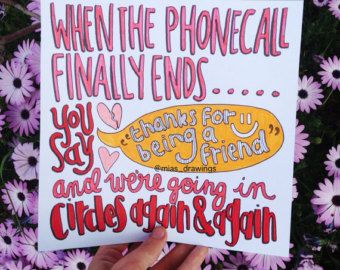 WHEN THE PHONECALL
FINALLY ENDS.....
YOU
SAY
"thanks for
being a
friend"
@mias_drawings
and we're going in
circles again & again